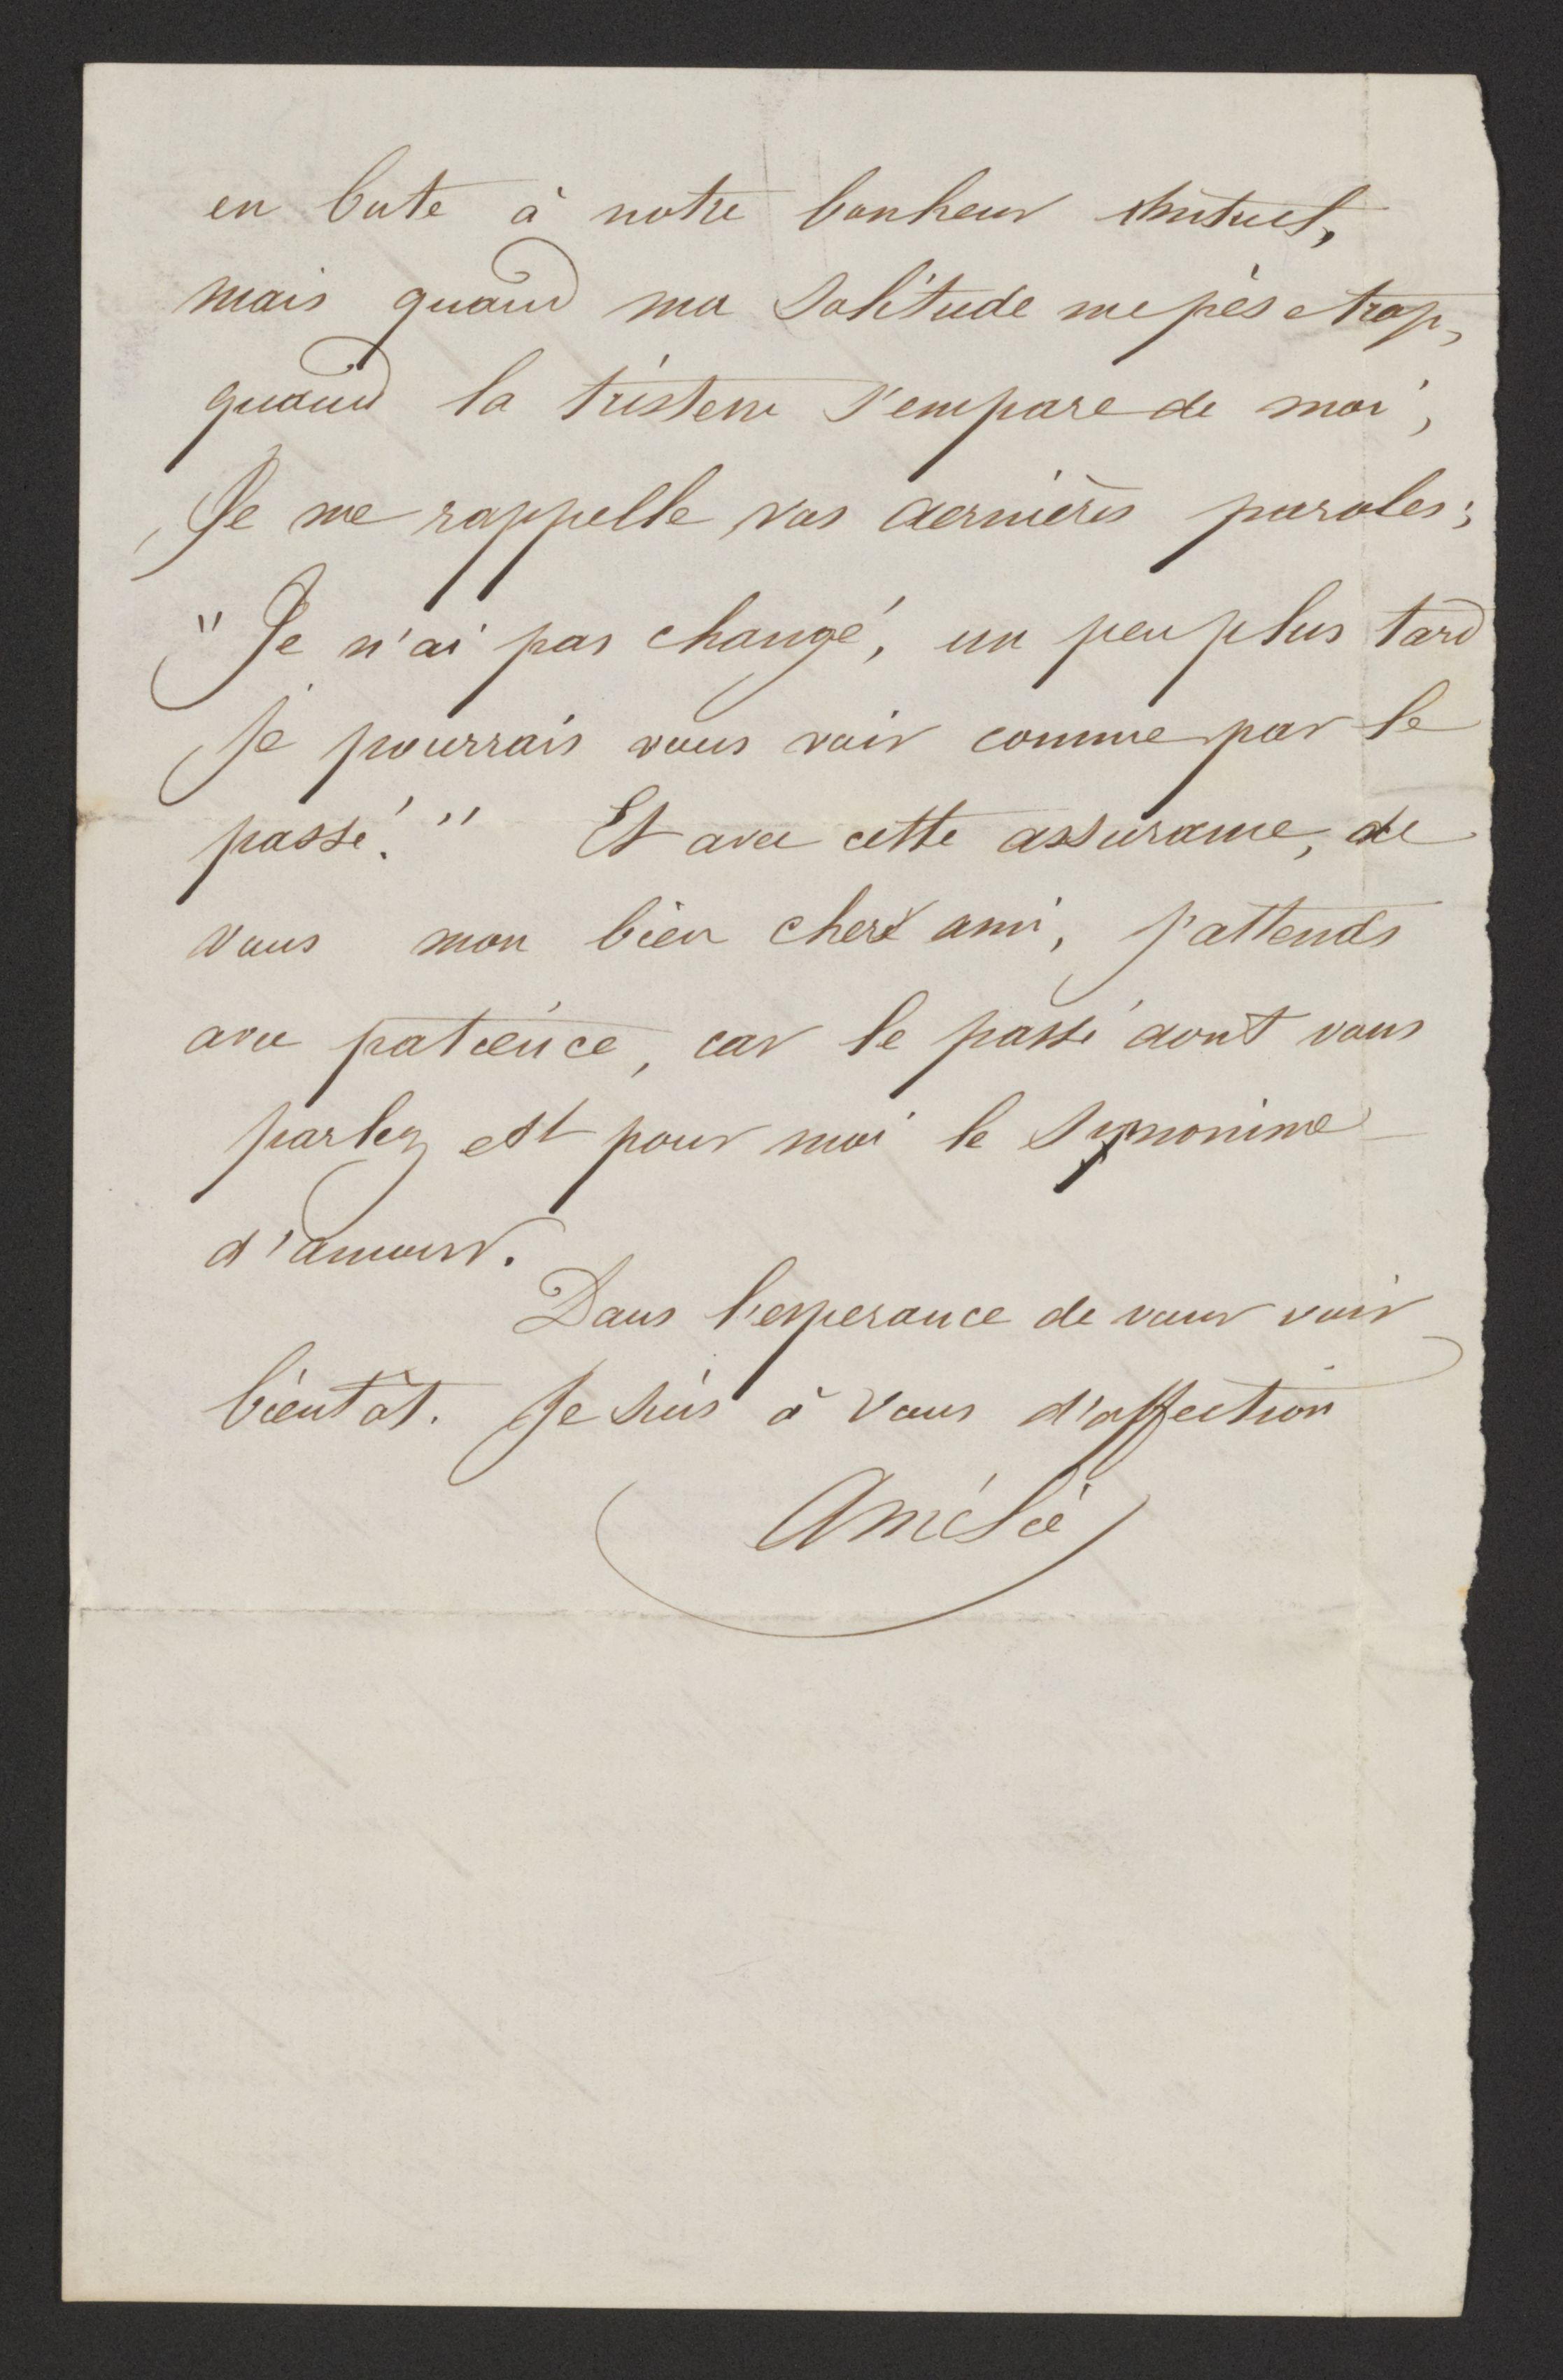 en bute à notre bonheur mutuel,
mais quand ma solitude me pèse trop,
quand la tristesse s'empare de moi,
Je me rappelle vos dernières paroles;
"Je n'ai pas changé, un peu plus tard
je pourrais vous voir comme par le
passé." Et avec cette assurance, de
vous mon bien cher ami, j'attends
avec patience, car le passé dont vous
parlez est pour moi le synonime
d'amour.
Dans l'esperance de vous voir
bientôt. Je suis à vous d'affection
Amélie